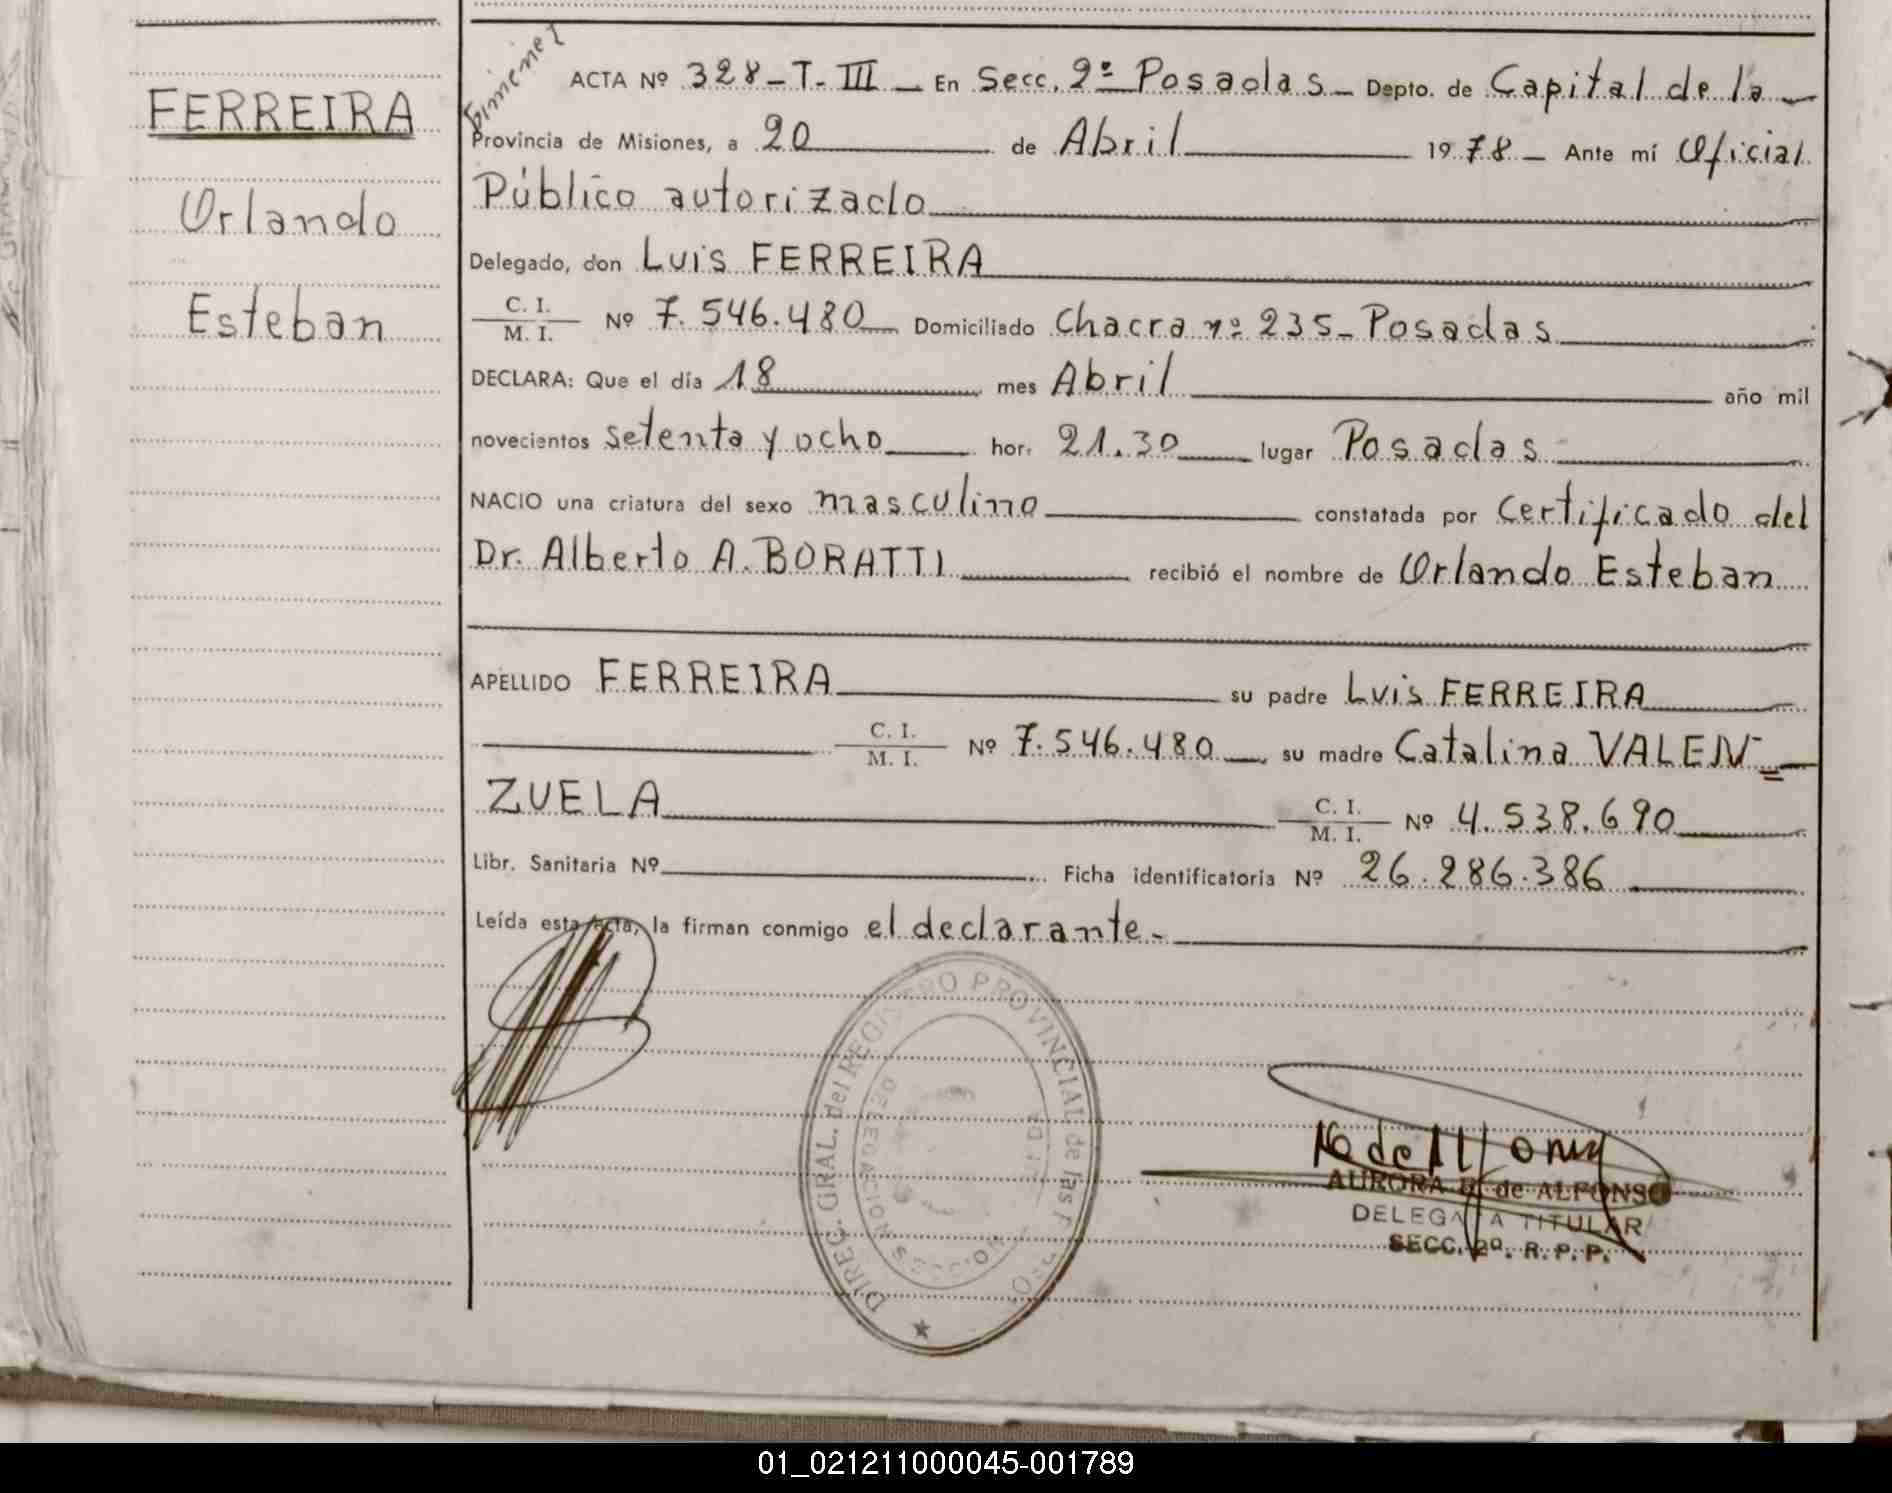 FERREIRA
Orlando
Esteban
Gimenez
ACTA Nº 328-T-III - En Secc. 2º Posadas - Depto. de Capital de la
Provincia de Misiones, a 20 de Abril 1978 - Ante mí Oficial
Público autorizado
Delegado, don Luis FERREIRA
C. I.
M. I. Nº 7.546.480 Domiciliado Chacra nº 235-Posadas
DECLARA: Que el día 18 mes Abril año mil
novecientos setenta y ocho hor. 21.30 lugar Posadas
NACIO una criatura del sexo masculino constatada por Certificado del
Dr. Alberto A. BORATTI recibió el nombre de Orlando Esteban
APELLIDO FERREIRA su padre Luis FERREIRA
C. I.
M. I. Nº 7.546.480 su madre Catalina VALEN-
ZUELA C. I.
M. I. Nº 4.538.690
Libr. Sanitaria Nº Ficha identificatoria Nº 26.286.386
Leída esta acta, la firman conmigo el declarante.-
DIREC. GRAL. del REGISTRO PROVINCIAL de las
AURORA B. de ALFONSO
DELEGADA TITULAR
SECC. 2º. R. P. P.
01_021211000045-001789